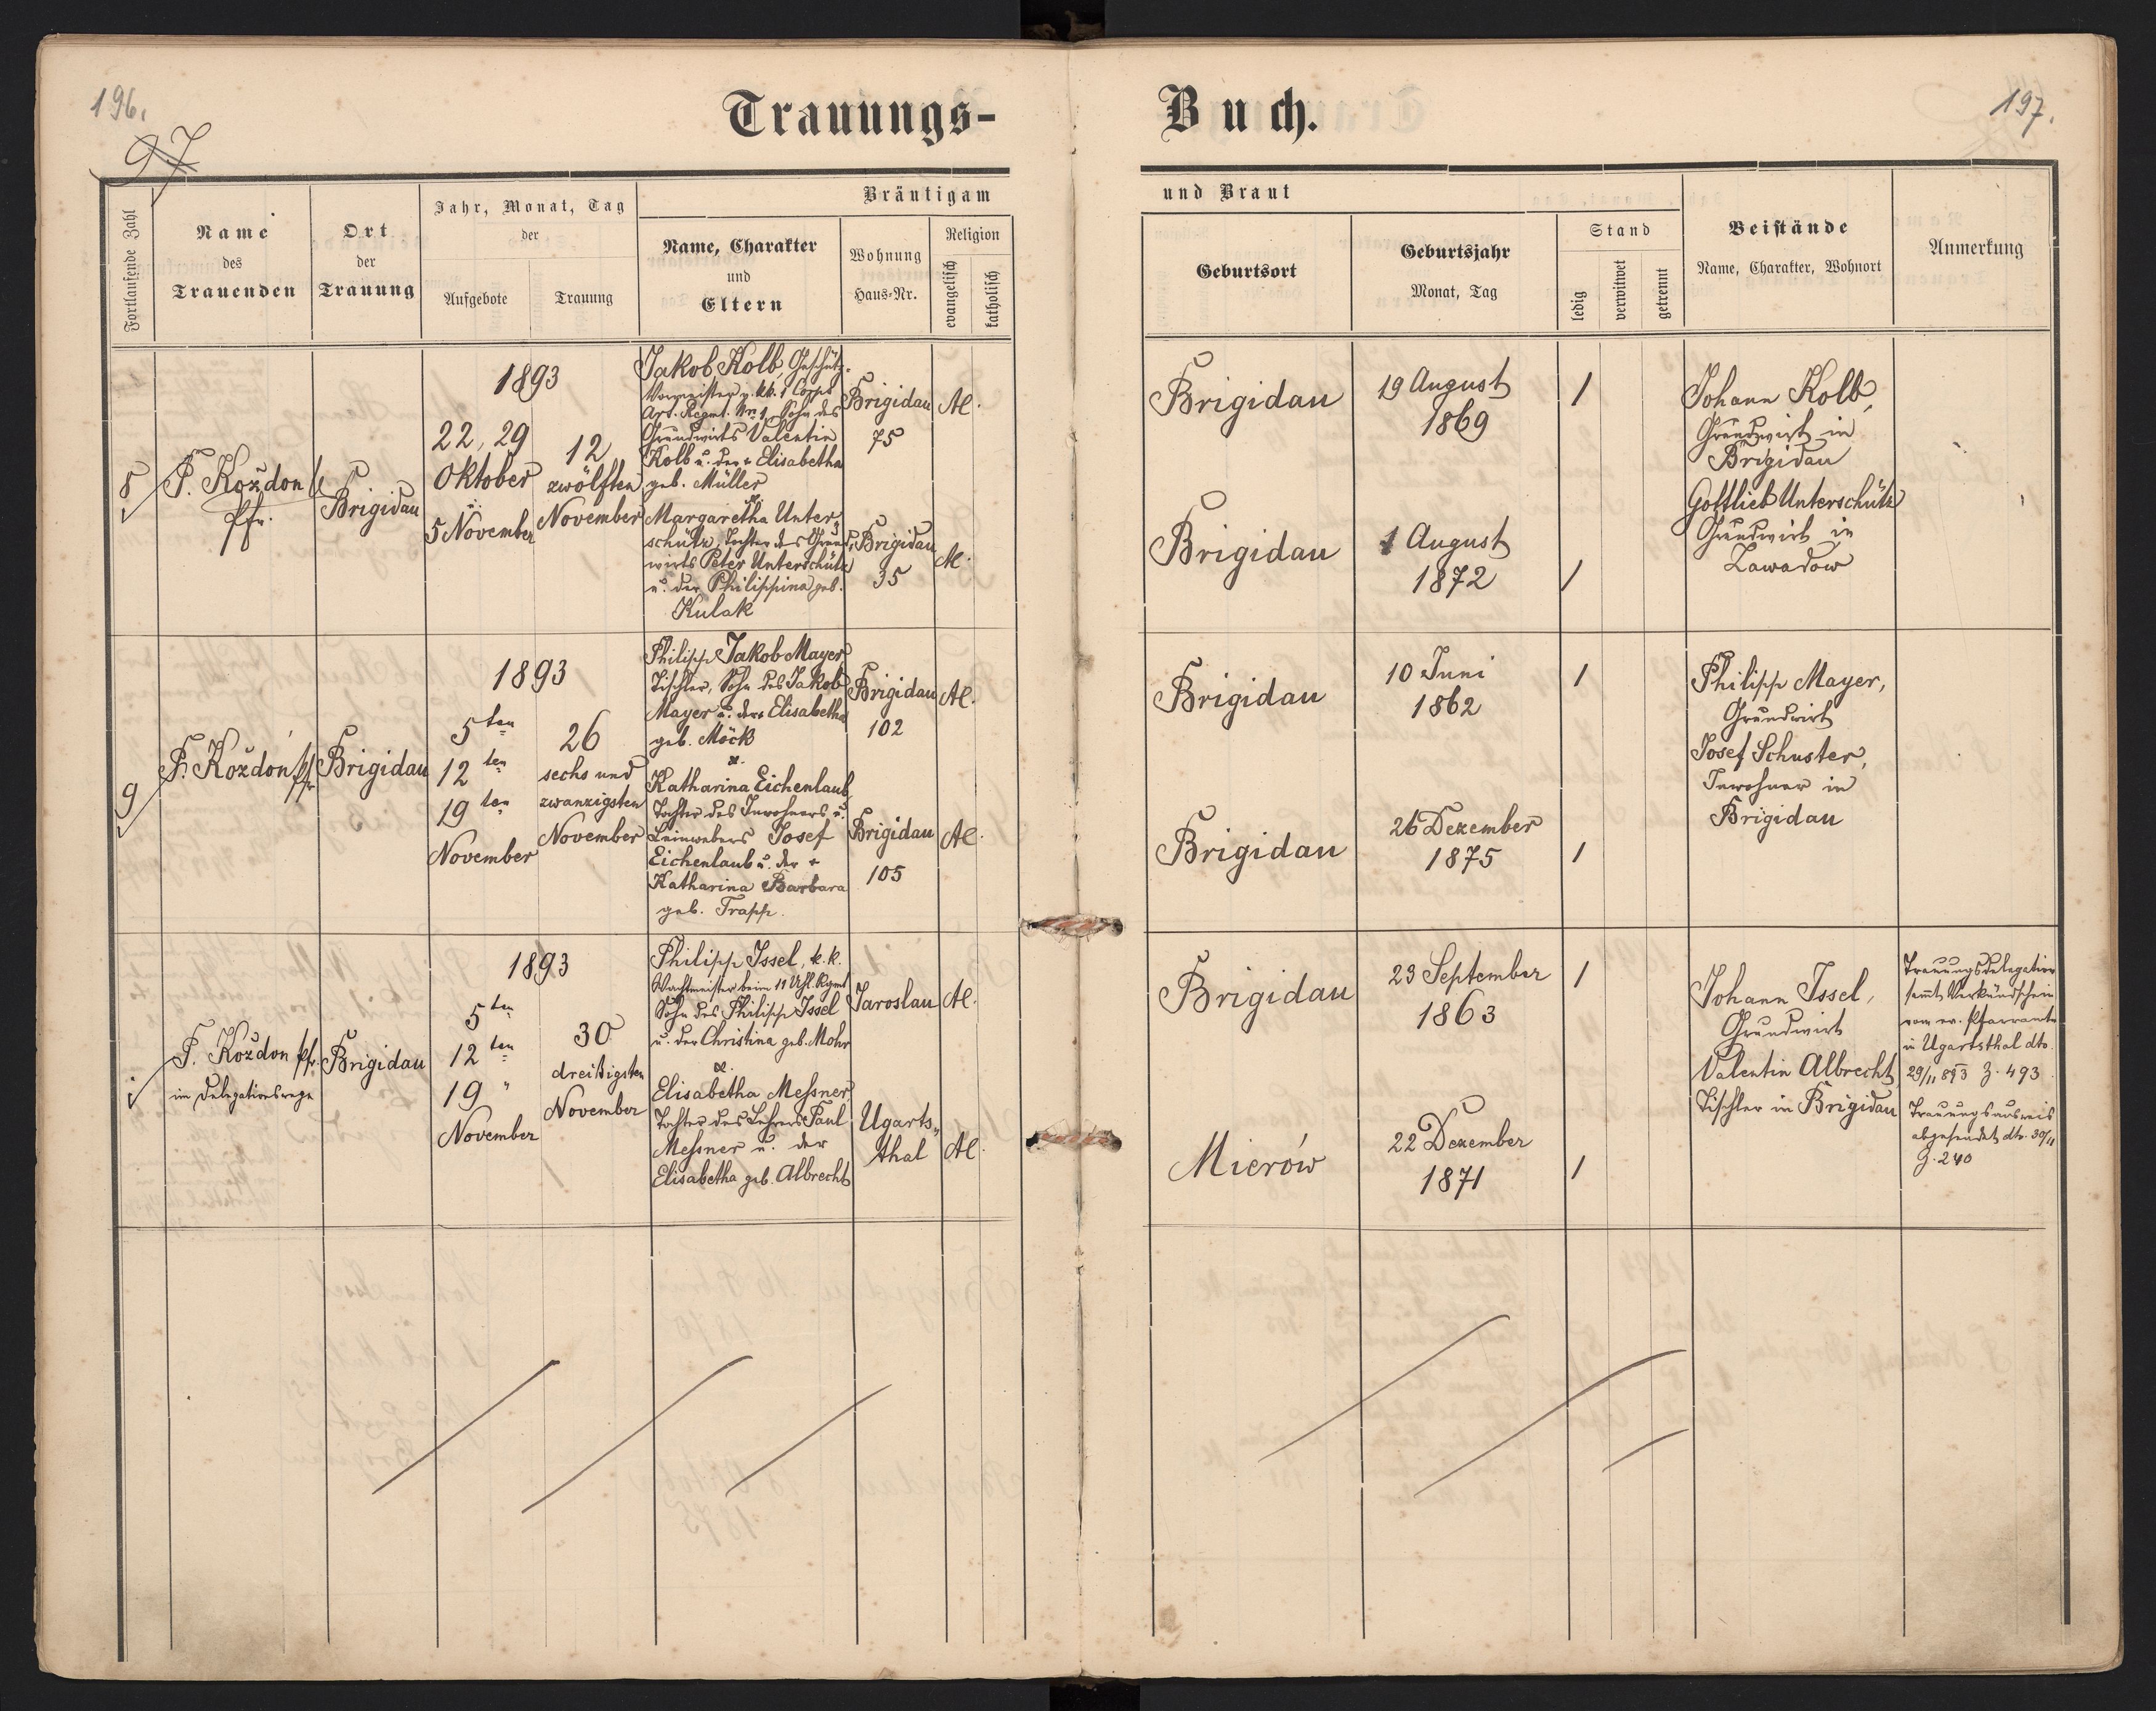 196.
97
Trauungs-
Fortlaufende Zahl
Name
des
Trauenden
Ort
der
Trauung
Jahr, Monat, Tag
der
Aufgebote
Trauung
Bräutigam
Name, Charakter
und
Eltern
Wohnung
Haus-Nr.
Religion
evangelisch
katholisch
8
P. Kożdoń
Pfr.
Brigidau
1893
22, 29
Oktober
u.
5 November
12
zwölften
November
Jakob Kolb, Geschütz-
Vormeister
Art. Regmt. Nr. 1, Sohn des
Grundwirts Valentin
Kolb u. der + Elisabetha
geb. Müller
&
Margaretha Unter-
schütz, Tochter des Grund-
wirts Peter Unterschütz
u. der Philippina geb.
Kulak
Brigidau
75
Brigidau
35
AC.
AC.
9
P. Kożdoń Pfr
Brigidau
1893
5ten
12ten
19ten
November
26
sechs und
zwanzigsten
November
Philipp Jakob Mayer
Tischler, Sohn des Jakob
Mayer u. der + Elisabetha
geb. Möck
&.
Katharina Eichenlaub
Tochter des Inwohners u.
Leinwebers Josef
Eichenlaub u. der +
Katharina Barbara
geb. Trapp.
Brigidau
102
Brigidau
105
AC.
AC.
P. Kożdoń Pfr.
im Delegationswege
Brigidau
1893
5ten
12ten
19 "
November
30
dreißigsten
November
Philipp Issel, k.k.
Wachtmeister beim 11 Regmt
Sohn des Philipp Issel
u. der Christina geb. Mohr
&.
Elisabetha Meßner
Tochter des Lehrers Paul
Meßner u. der
Elisabetha geb. Albrecht
Jaroslau
Ugarts-
thal
AC.
AC.
Buch.
197.
und Braut
Geburtsort
Geburtsjahr
Monat, Tag
Stand
ledig
verwitwet
getrennt
Beistände
Name, Charakter, Wohnort
Anmerkung
Brigidau
19 August
1869
1
Brigidau
1 August
1872
1
Johann Kolb,
Grundwirt in
Brigidau
Gottlieb Unterschütz
Grundwirt in
Zawadow
Brigidau
10 Juni
1862
1
Brigidau
26 Dezember
1875
1
Philipp Mayer,
Grundwirt
Josef Schuster,
Inwohner in
Brigidau
Brigidau
23 September
1863
1
Mierów
22 Dezember
1871
1
Johann Issel,
Grundwirt
Valentin Albrecht
Tischler in Brigidau
Trauungsdelegation
sammt Verkündschein
vom ev. Pfarramte
in Ugartsthal dto.
29/11 893 Z. 493
Trauungsausweis
abgesendet dto. 30/11
Z. 240